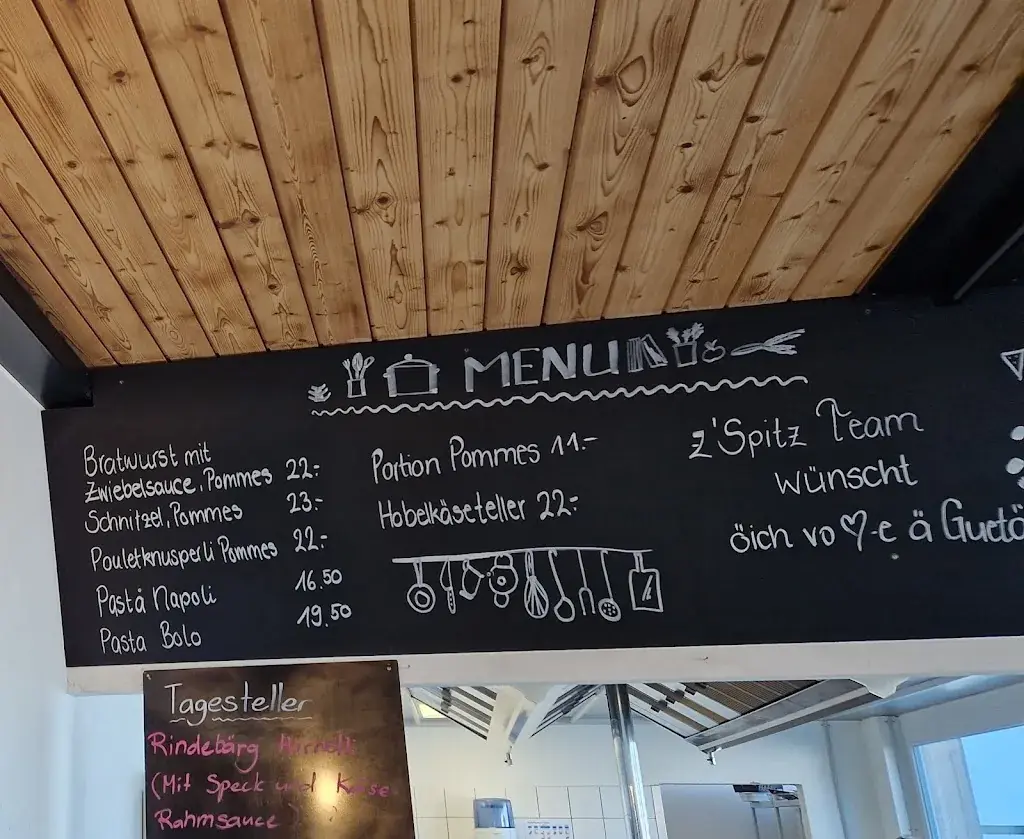 MENU
Bratwurst mit
Zwiebelsauce, Pommes 22.-
Schnitzel, Pommes 23.-
Pouletknusperli Pommes 22.-
Pasta Napoli 16.50
Pasta Bolo 19.50
Portion Pommes 11.-
Hobelkäseteller 22.-
z'Spitz Team
wünscht
öich vo ♡-e ä Guetä
Tagesteller
Rindebärg Hörnli
(Mit Speck und Käse
Rahmsauce